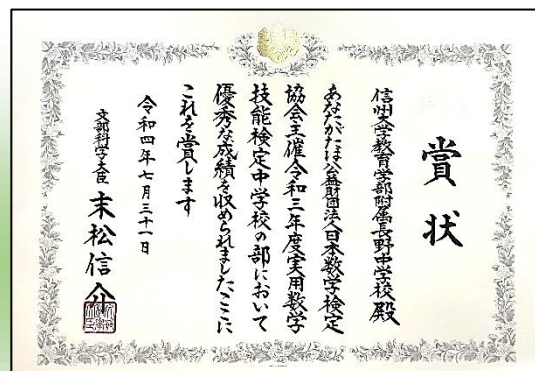 賞状
信州大学教育学部附属長野中学校殿
あなたがたは公益財団法人日本数学検定
協会主催令和三年度実用数学
技能検定中学校の部において
優秀な成績を収められましたことに
これを賞します
令和四年七月三十一日
文部科学大臣 末松信介